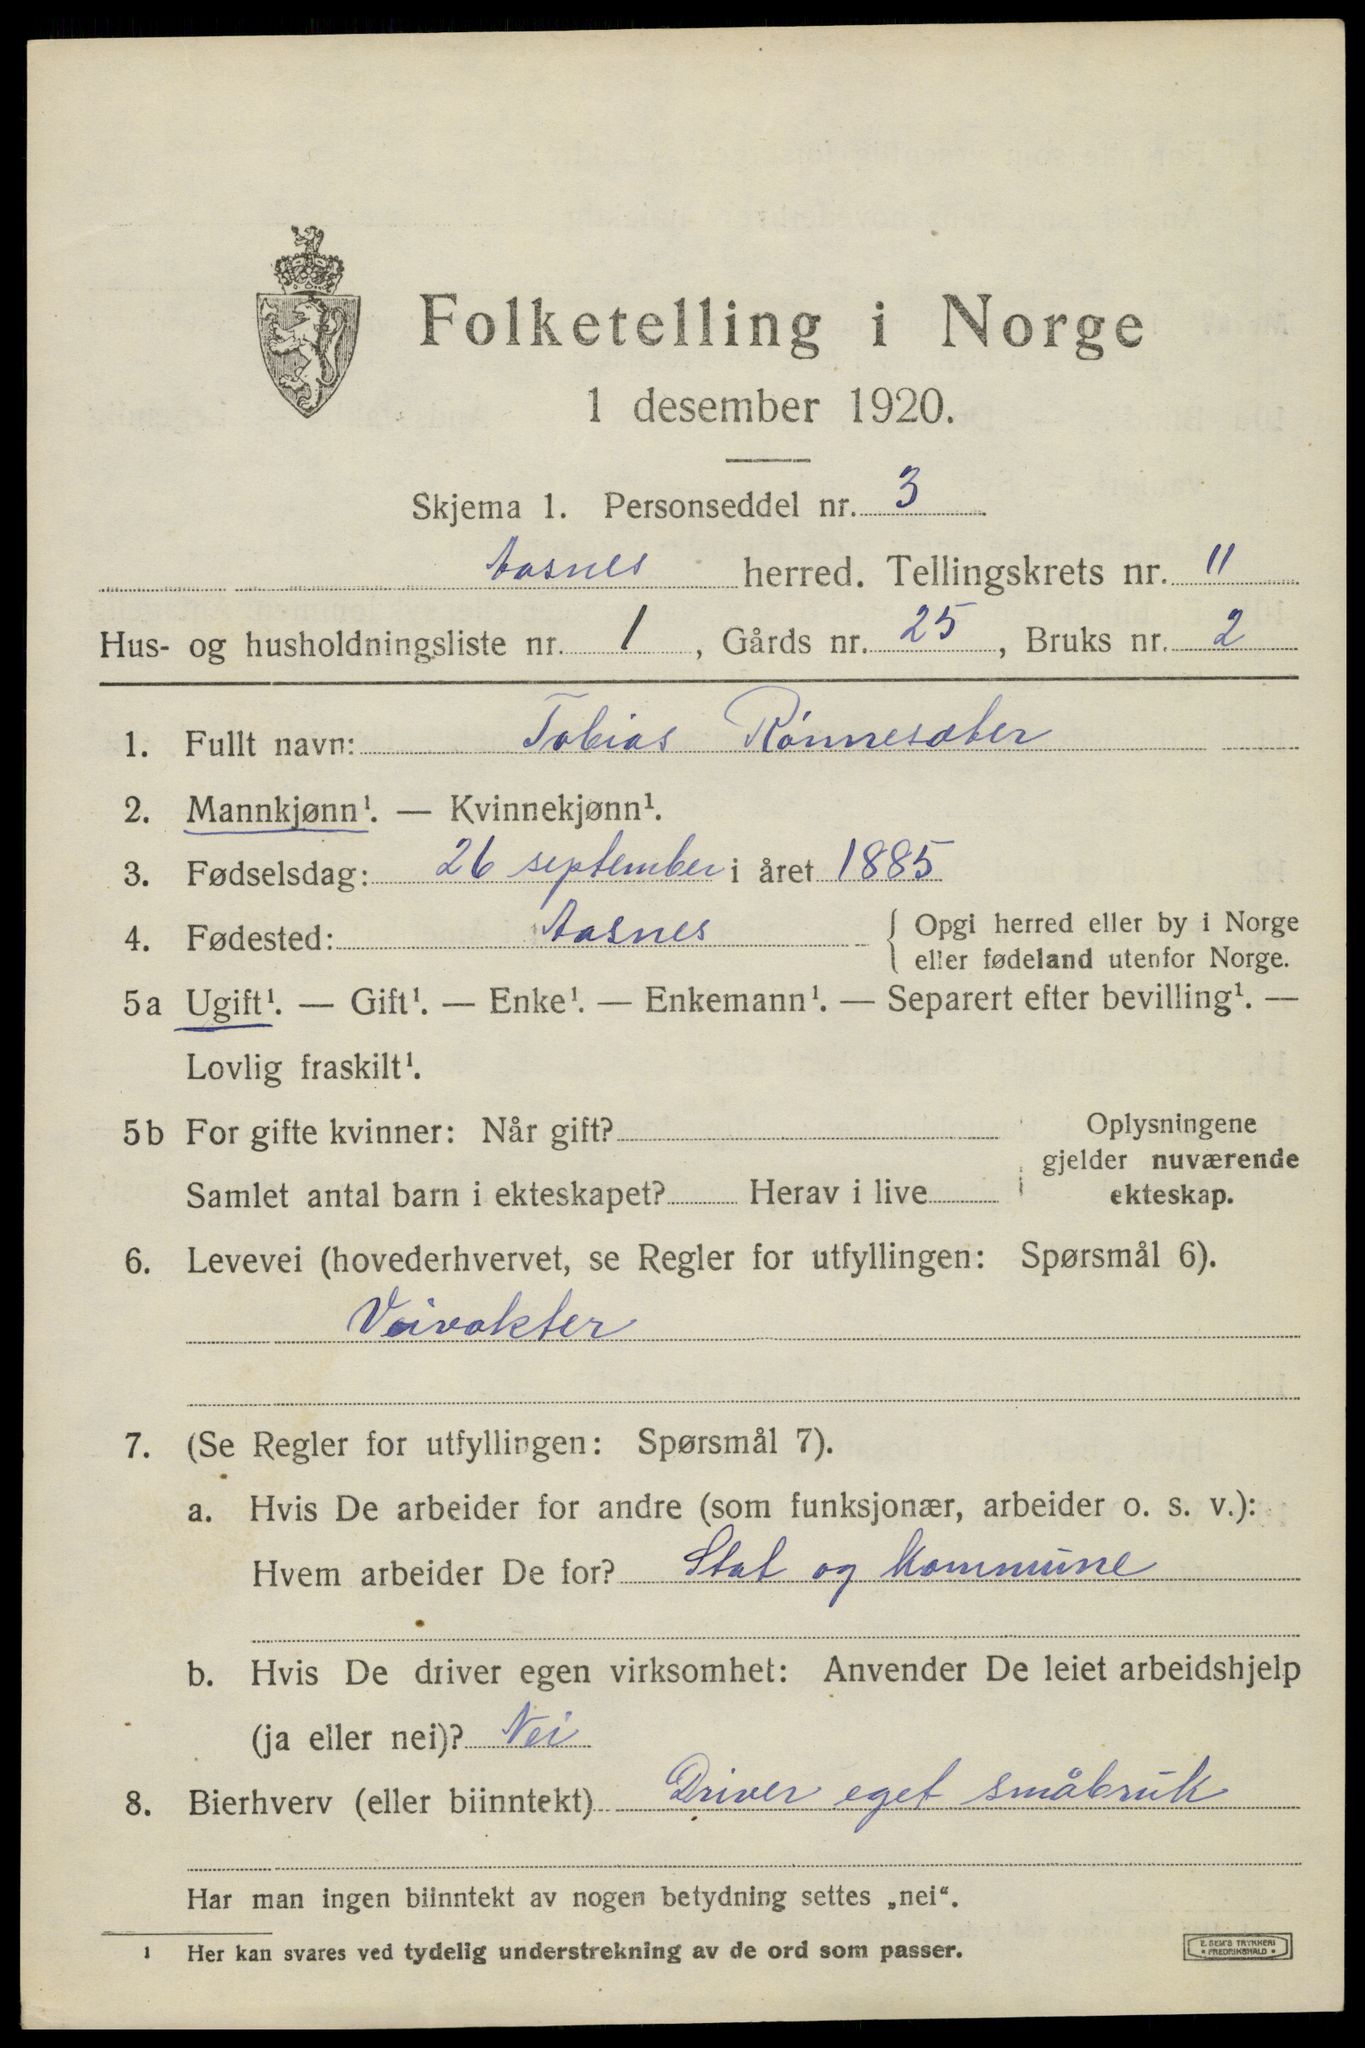 Folketelling i Norge
1 desember 1920.
Skjema 1. Personseddel nr. 3
Aasnes herred. Tellingskrets nr. 11
Hus- og husholdningsliste nr. 1, Gårds nr. 25, Bruks nr. 2
1. Fullt navn: Tobias Rønnesæter
2. Mannkjønn¹. — Kvinnekjønn¹.
3. Fødselsdag: 26 september i året 1885
4. Fødested: Aasnes { Opgi herred eller by i Norge
eller fødeland utenfor Norge.
5a Ugift¹. — Gift¹. — Enke¹. — Enkemann¹. — Separert efter bevilling¹. —
Lovlig fraskilt¹.
5b For gifte kvinner: Når gift?
Samlet antal barn i ekteskapet? Herav i live
Oplysningene
gjelder nuværende
ekteskap.
6. Levevei (hovederhvervet, se Regler for utfyllingen: Spørsmål 6).
Veivokter
7. (Se Regler for utfyllingen: Spørsmål 7).
a. Hvis De arbeider for andre (som funksjonær, arbeider o. s. v.):
Hvem arbeider De for? Stat og kommune
b. Hvis De driver egen virksomhet: Anvender De leiet arbeidshjelp
(ja eller nei)? Nei
8. Bierhverv (eller biinntekt) Driver eget småbruk
Har man ingen biinntekt av nogen betydning settes „nei“.
¹ Her kan svares ved tydelig understrekning av de ord som passer.
E. SEM'S TRYKKERI
• FREDRIKSHALD •